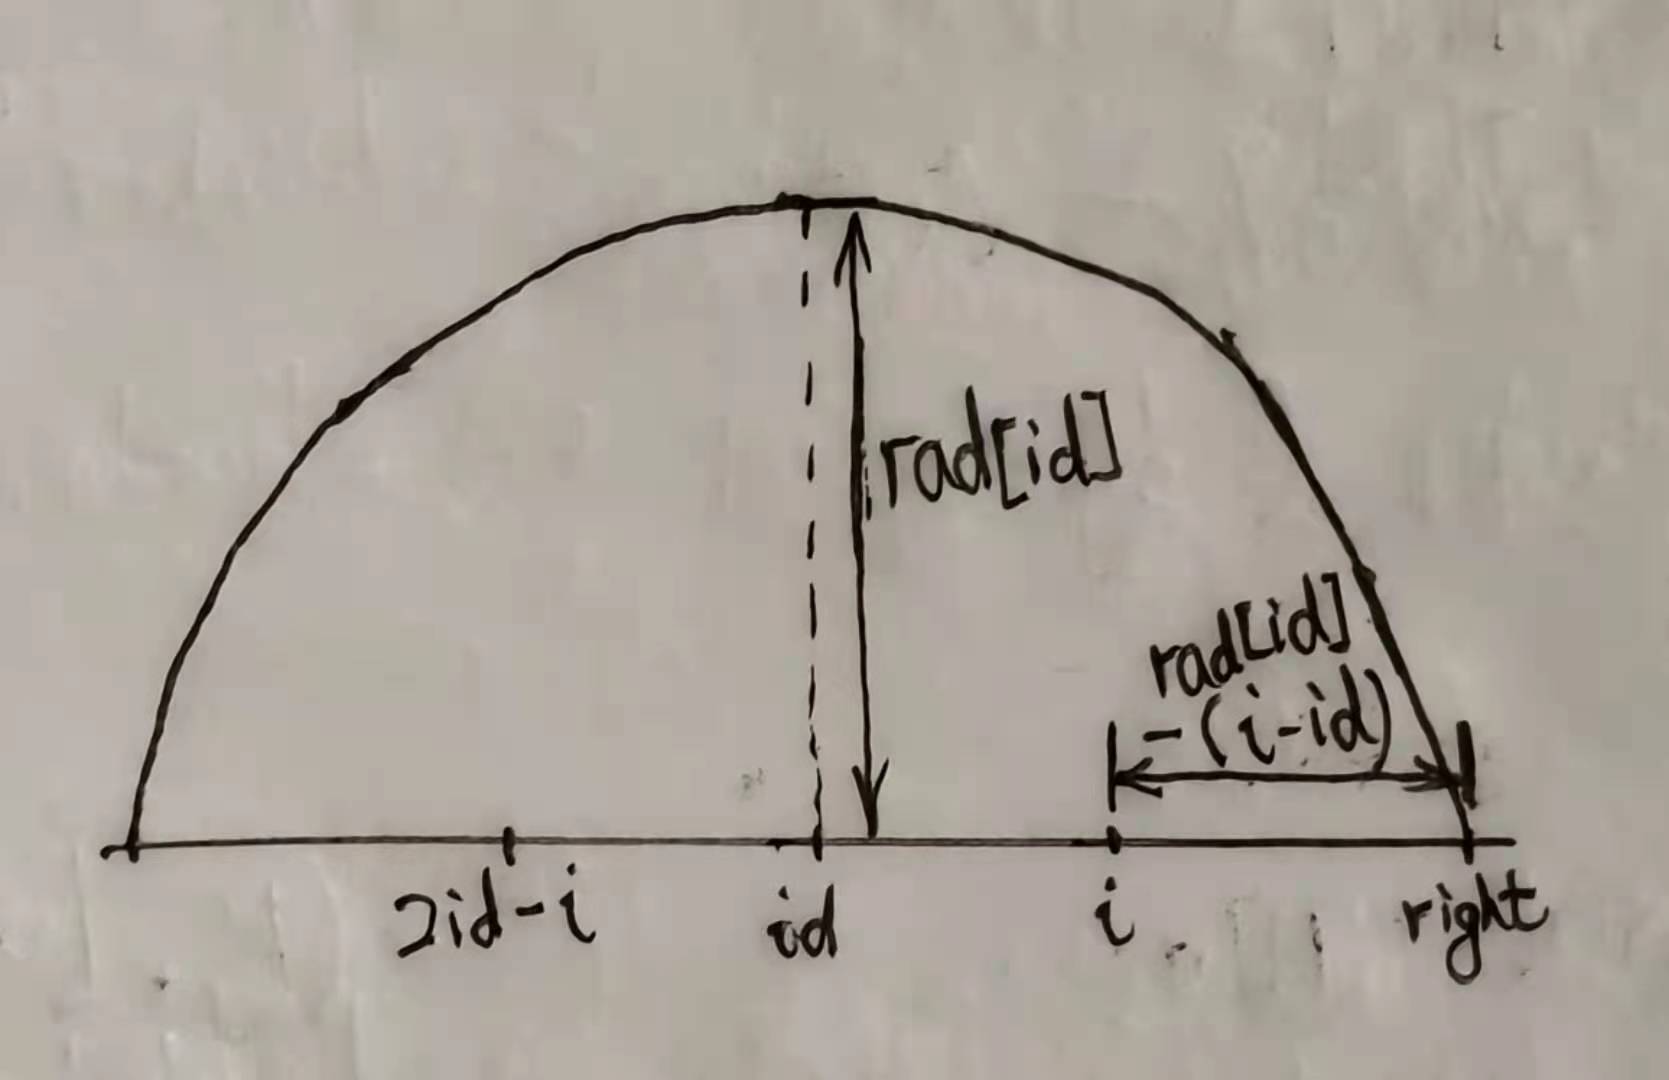 rad[id]
rad[id]
-(i-id)
2id-i
id
i
right